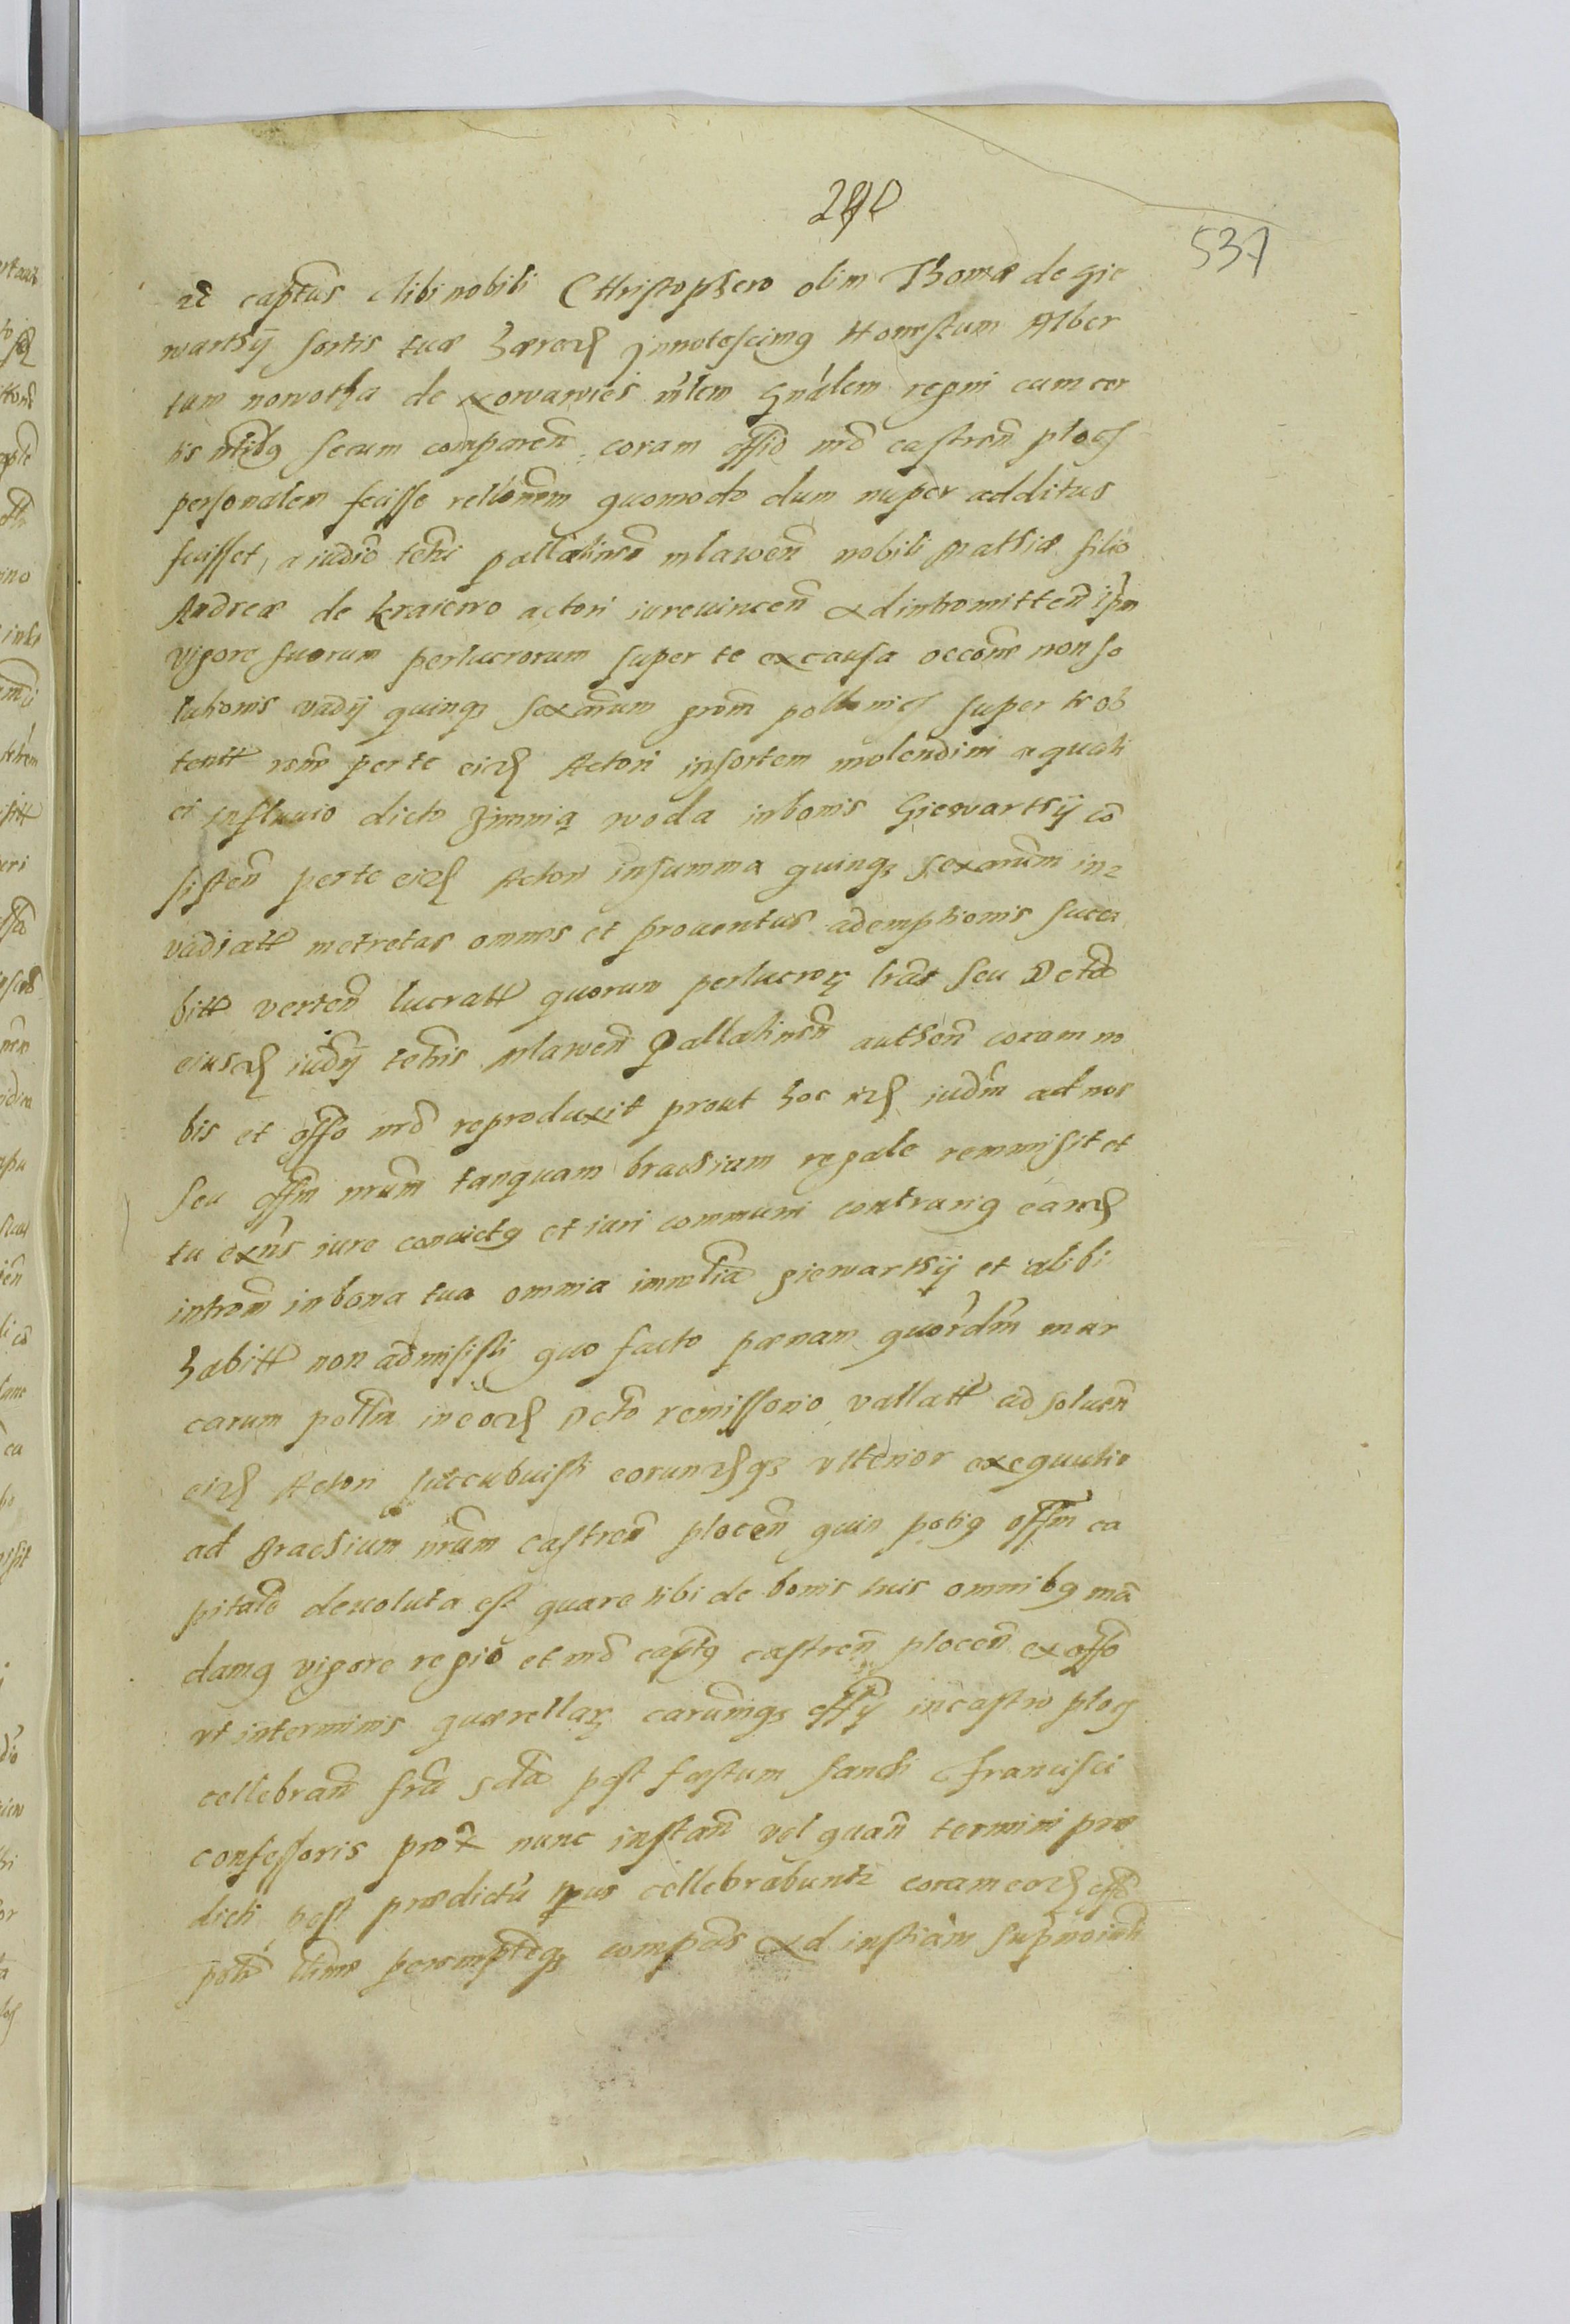 290
537
et captus tibi nobili Christophero olim Thomæ de Gie
warthy sortis tuæ hæred Innotescimus Honestum Alber
tum nowotka de xowawies mlem Gnalem regni cum cer
tis nobilibus secum comparen coram offio nro castren ploc
personalem fecisse rellonem quomodo dum nuper additus
fuisset, a iudicio terri pallatinen mlawen nobili Mathiæ filio
Andreæ de kraiewo actori iurevincen ad intromitten ipm
vigore suorum perlucrorum super te ex causa occone non so
lutionis vadij quinq sexarum grom pollonic super te ob
tentt rone per te eid Actori in sortem molendini æquali
et in fluvio dicto Zimnia woda in bonis Giewarthy co
sisten per te eid Actori in summa quinq sexarum in
vadiatt metretas omnes et proventus ademptionis succu
bitt verten lucratt quorum perlucror lras seu Dcta
eiusd iudij terris Mlawen Pallatinen authen coram no
bis et offo nro reproduxit prout hoc id iudm ad nos
seu offm nrum tanquam brachium regale remmisit et
tu exns iure convictus et iuri communi contrarius eand
introm in bona tua omnia immlia giewarthy et alibi
habitt non admisisti quo facto pænam quordm mar
carum pollm in eod Dcto remissorio vallatt ad solven
eid Actori succubuisti eorundq ulterior exequutio
ad Brachium nrum castren plocen quin potius offm ca
pitale devoluta est quare tibi de bonis tuis omnibus ma
damus vigore regio et nro captus castren plocen ex offo
ut in terminis quærellar carumq offij in castro ploc
cellebran fria scda post festum sancti Francisci
confessoris prox nunc instan vel quan termini præ
dicti post prædictu tpus cellebrabuntr coram eod offo
peremptoq compas ad instiam